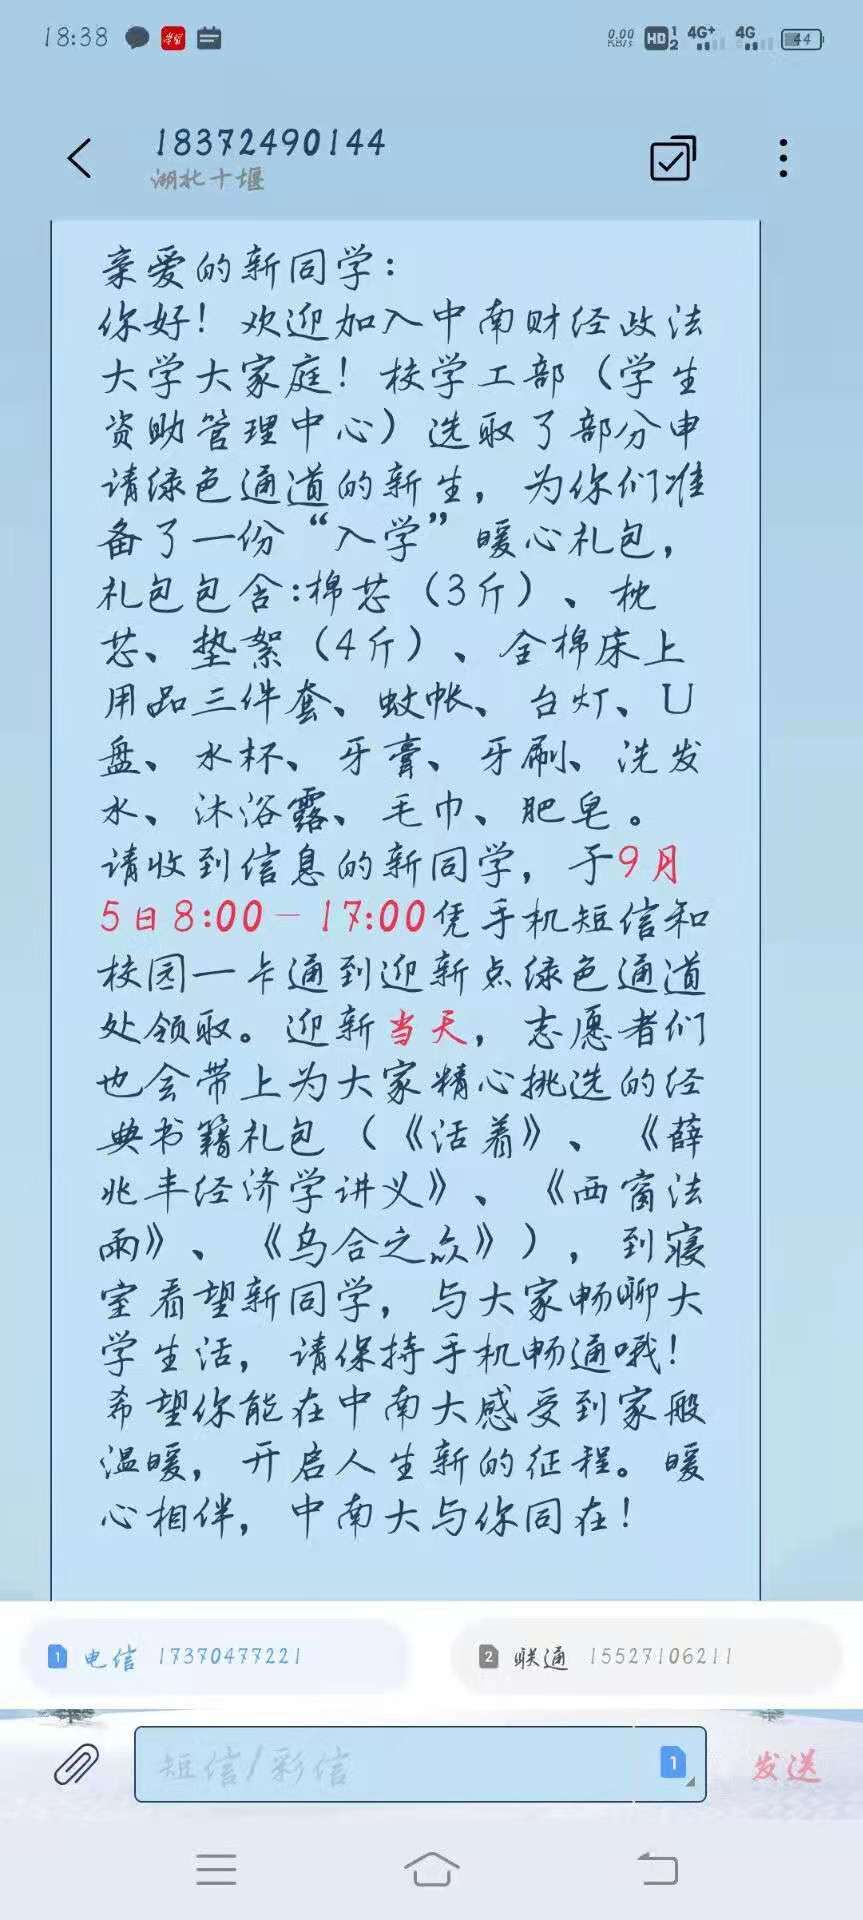 18:38
学习
0.00 KB/s HD 1 2 4G+ 4G 44
18372490144
湖北十堰
亲爱的新同学：
你好！欢迎加入中南财经政法
大学大家庭！校学工部（学生
资助管理中心）选取了部分申
请绿色通道的新生，为你们准
备了一份“入学”暖心礼包，
礼包包含:棉芯（3斤）、枕
芯、垫絮（4斤）、全棉床上
用品三件套、蚊帐、台灯、U
盘、水杯、牙膏、牙刷、洗发
水、沐浴露、毛巾、肥皂。
请收到信息的新同学，于9月
5日8:00—17:00凭手机短信和
校园一卡通到迎新点绿色通道
处领取。迎新当天，志愿者们
也会带上为大家精心挑选的经
典书籍礼包（《活着》、《薛
兆丰经济学讲义》、《西窗法
雨》、《乌合之众》），到寝
室看望新同学，与大家畅聊大
学生活，请保持手机畅通哦！
希望你能在中南大感受到家般
温暖，开启人生新的征程。暖
心相伴，中南大与你同在！
1 电信 17370477221
2 联通 15527106211
短信/彩信 1 发送